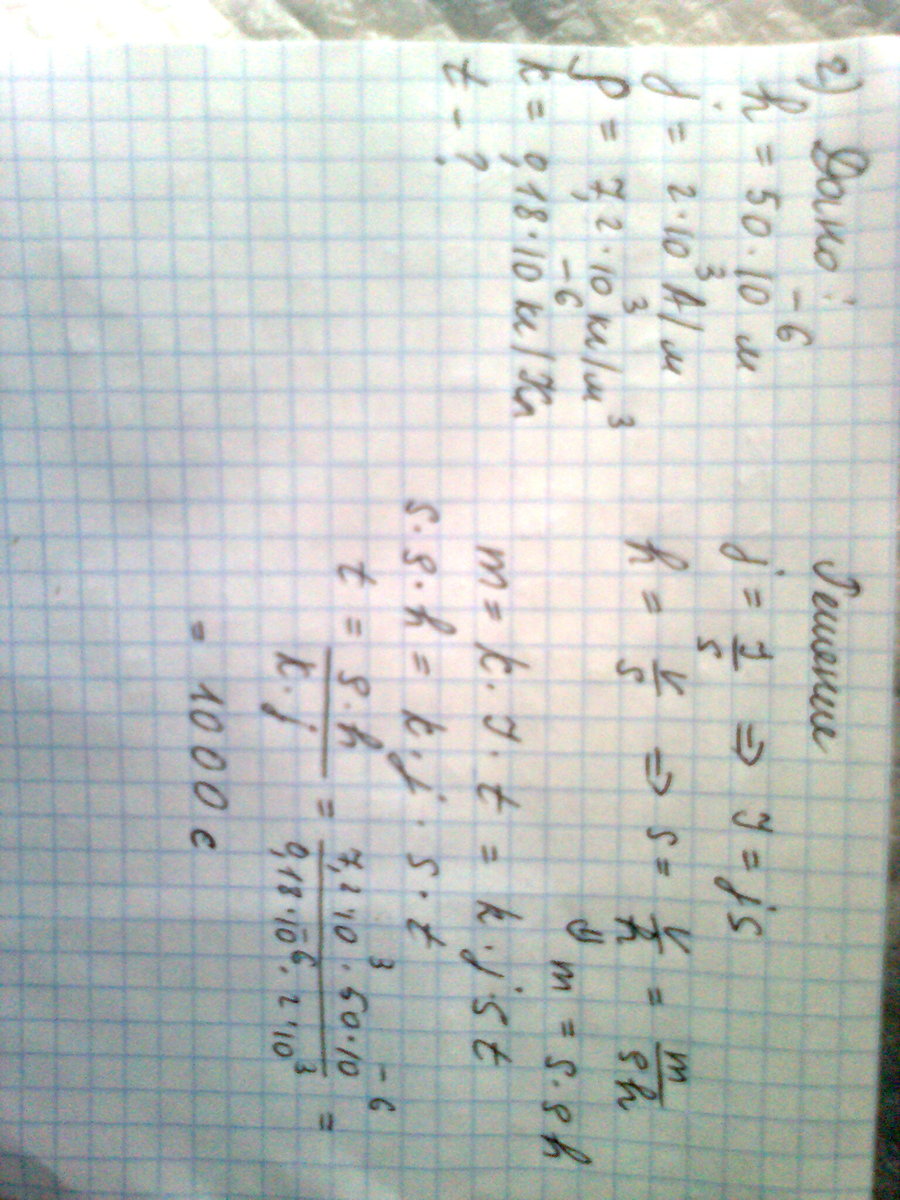 2) Дано:
h = 50·10⁻⁶ м
j = 2·10³ А/м
ρ = 7,2·10³ кг/м³
k = 0,18·10⁻⁶ кг/Кл
t - ?
Решение
j = I/S ⇒ I = jS
h = V/S ⇒ S = V/h = m/ρh
⇓
m = S·ρh
m = k·I·t = k·jSt
S·ρ·h = k·j·S·t
t = ρ·h/k·j = 7,2·10³·50·10⁻⁶/0,18·10⁻⁶·2·10³ =
= 1000 с